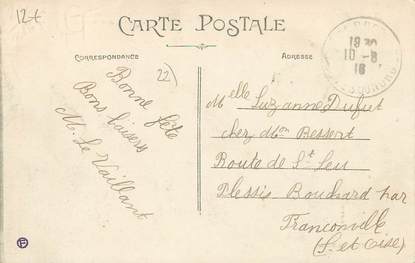 12t
CARTE POSTALE
CORRESPONDANCE
ADRESSE
22
Bonne fête
Bons baisers
M. Le Vaillant
19 30
10 - 8
16
Melle Suzanne Dufut
chez Mon Bessert
Route de St Leu
Plessis Bouchard par
Franconville
(S. et Oise)